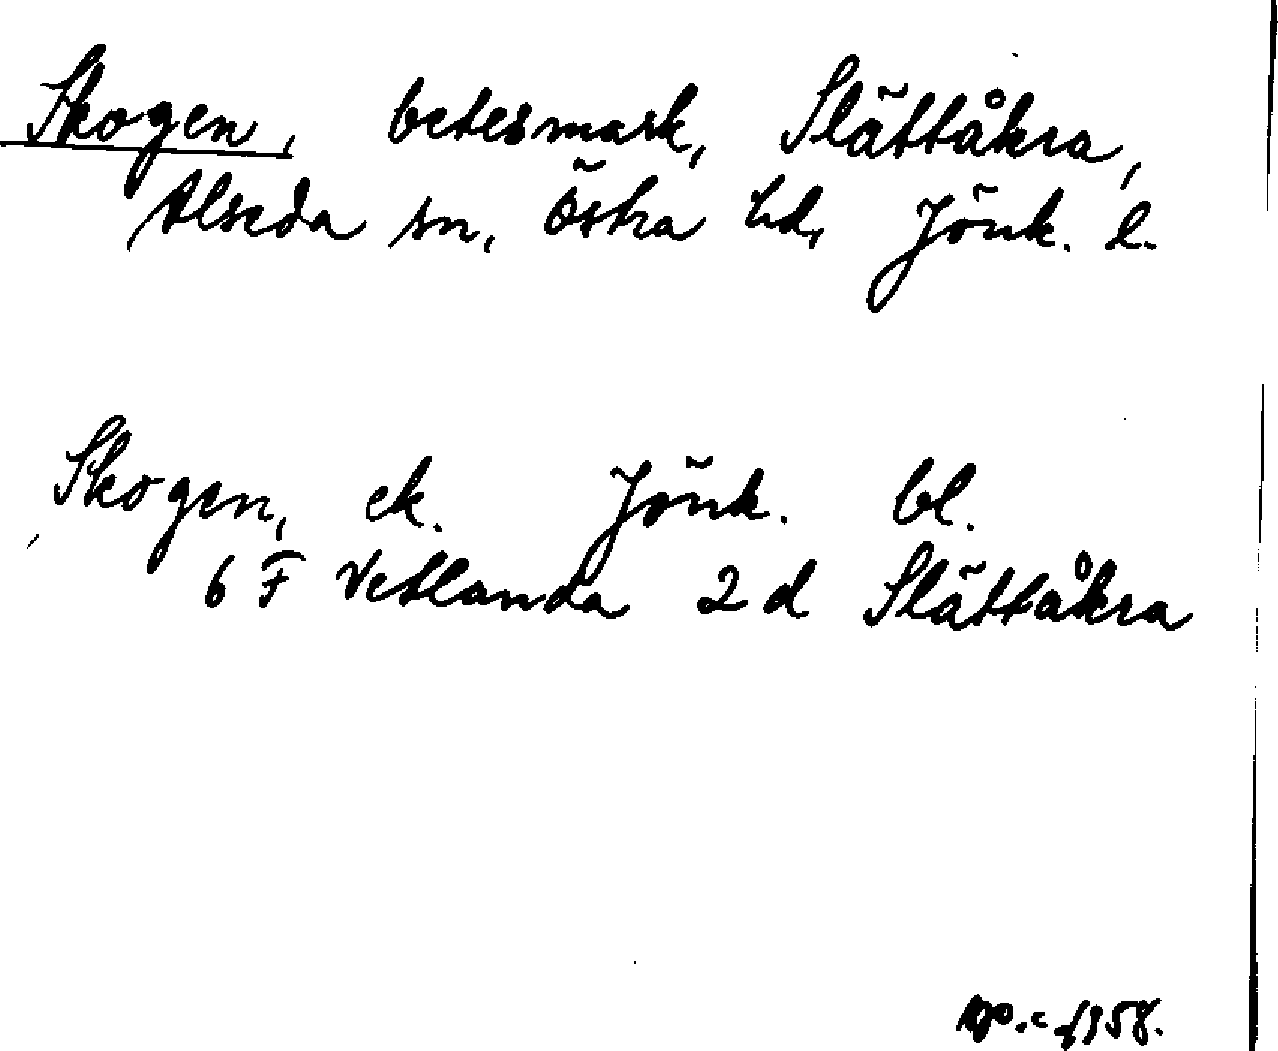 Skogen, betesmark, Slättåkra,
Alseda sn, Östra hd, Jönk. l.
Skogen, ek. Jönk. bl.
6 F Vetlanda 2 d Slättåkra
1958.